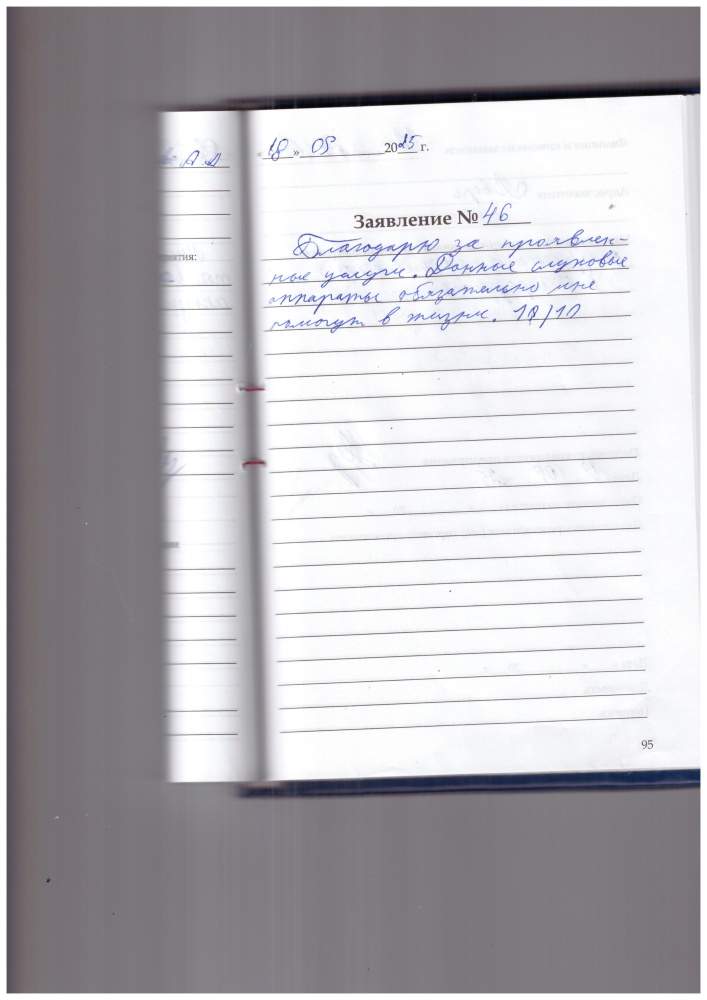 А.А
ятия:
«18» 05 2025 г.
Заявление № 46
Благодарю за проявлен-
ные услуги. Данные слуховые
аппараты обязательно мне
помогут в жизни. 10/10
95